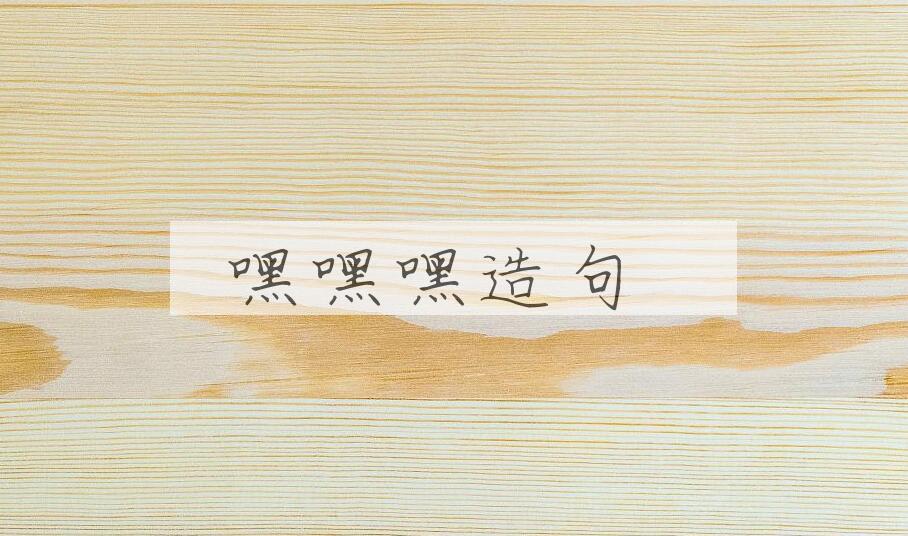 嘿嘿嘿造句